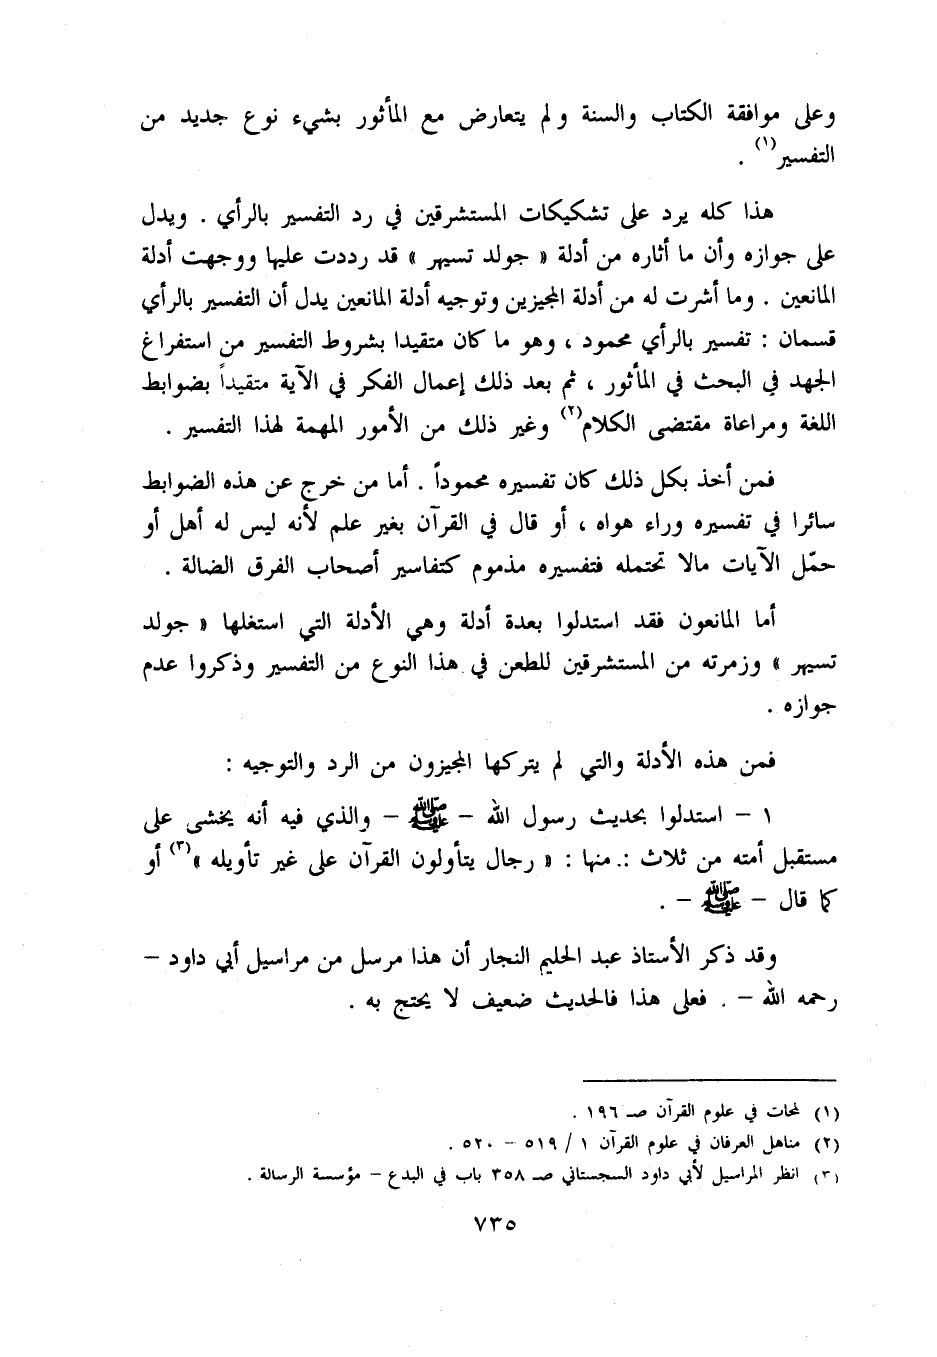 وعلى موافقة الكتاب والسنة ولم يتعارض مع المأثور بشيء نوع جديد من
التفسير(١) .
هذا كله يرد على تشكيكات المستشرقين في رد التفسير بالرأي . ويدل
على جوازه وأن ما أثاره من أدلة « جولد تسيهر » قد رددت عليها ووجهت أدلة
المانعين . وما أشرت له من أدلة المجيزين وتوجيه أدلة المانعين يدل أن التفسير بالرأي
قسمان : تفسير بالرأي محمود ، وهو ما كان متقيدا بشروط التفسير من استفراغ
الجهد في البحث في المأثور ، ثم بعد ذلك إعمال الفكر في الآية متقيداً بضوابط
اللغة ومراعاة مقتضى الكلام(٢) وغير ذلك من الأمور المهمة لهذا التفسير .
فمن أخذ بكل ذلك كان تفسيره محموداً . أما من خرج عن هذه الضوابط
سائرا في تفسيره وراء هواه ، أو قال في القرآن بغير علم لأنه ليس له أهل أو
حمّل الآيات مالا تحتمله فتفسيره مذموم كتفاسير أصحاب الفرق الضالة .
أما المانعون فقد استدلوا بعدة أدلة وهي الأدلة التي استغلها « جولد
تسيهر » وزمرته من المستشرقين للطعن في هذا النوع من التفسير وذكروا عدم
جوازه .
فمن هذه الأدلة والتي لم يتركها المجيزون من الرد والتوجيه :
١ – استدلوا بحديث رسول الله – ﷺ – والذي فيه أنه يخشى على
مستقبل أمته من ثلاث :. منها : « رجال يتأولون القرآن على غير تأويله »(٣) أو
كما قال – ﷺ – .
وقد ذكر الأستاذ عبد الحليم النجار أن هذا مرسل من مراسيل أبي داود –
رحمه الله – . فعلى هذا فالحديث ضعيف لا يحتج به .
(١) لمحات في علوم القرآن صـ ١٩٦ .
(٢) مناهل العرفان في علوم القرآن ١ / ٥١٩ – ٥٢٠ .
(٣) انظر المراسيل لأبي داود السجستاني صـ ٣٥٨ باب في البدع – مؤسسة الرسالة .
٧٣٥